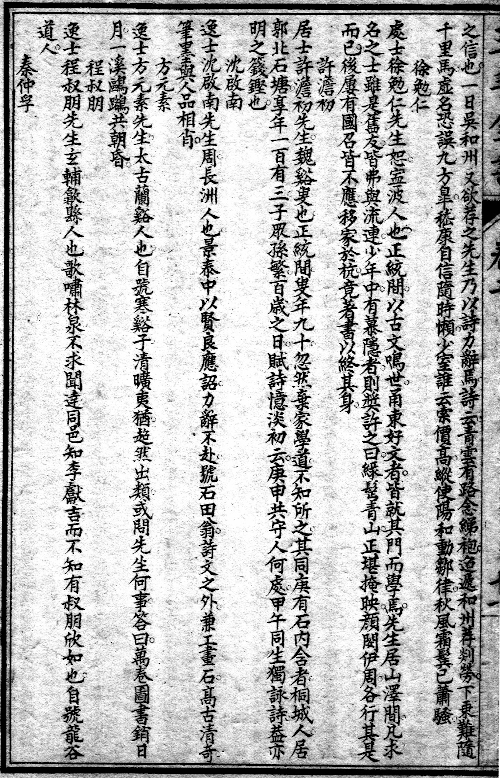 之信也一日吳和州又欲存之先生乃以詩力辭焉詩云青雲有路念綈袍迢遞和州再判勞下吏難隨
千里馬虛名恐誤九方皐嵇康自信隨時懶少室誰云索價高蹤使陽和動鄒律秋風霜鬢已蕭騷
徐勉仁
處士徐勉仁先生恕寧波人也正統間以古文鳴世甬東好文者皆就其門而學焉先生居山澤間凡求
名之士雖是舊友皆弗與流連少年中有慕隱者則奬許之曰綠鬢青山正堪掩映顔閔伊周各行其是
而已後屢有國召皆不應移家於杭竟著書以終其身
許澹初
居士許澹初先生魏谿叟也正統間叟年九十忽然棄家學道不知所之其同庚有石内含者桐城人居
郭北石塘享年一百有三子孫繁百歲之日賦詩憶淡初云庚申共守人何處甲午同生獨詠詩益亦
明之籛鏗也
沈啟南
逸士沈啟南先生周長洲人也景泰中以賢良應詔力辭不赴號石田翁詩文之外兼工畫石高古清奇
筆墨與人品相肖
方元素
逸士方元素先生太古蘭谿人也自號寒谿子清曠夷猶超然出類或問先生何事答曰萬卷圖書銷日
月一溪鷗鷺共朝昏
程叔朋
逸士程叔朋先生玄輔歙縣人也歌嘯林泉不求聞達同邑知李獻吉而不知有叔朋欣如也自號龍谷
道人
秦仲孚